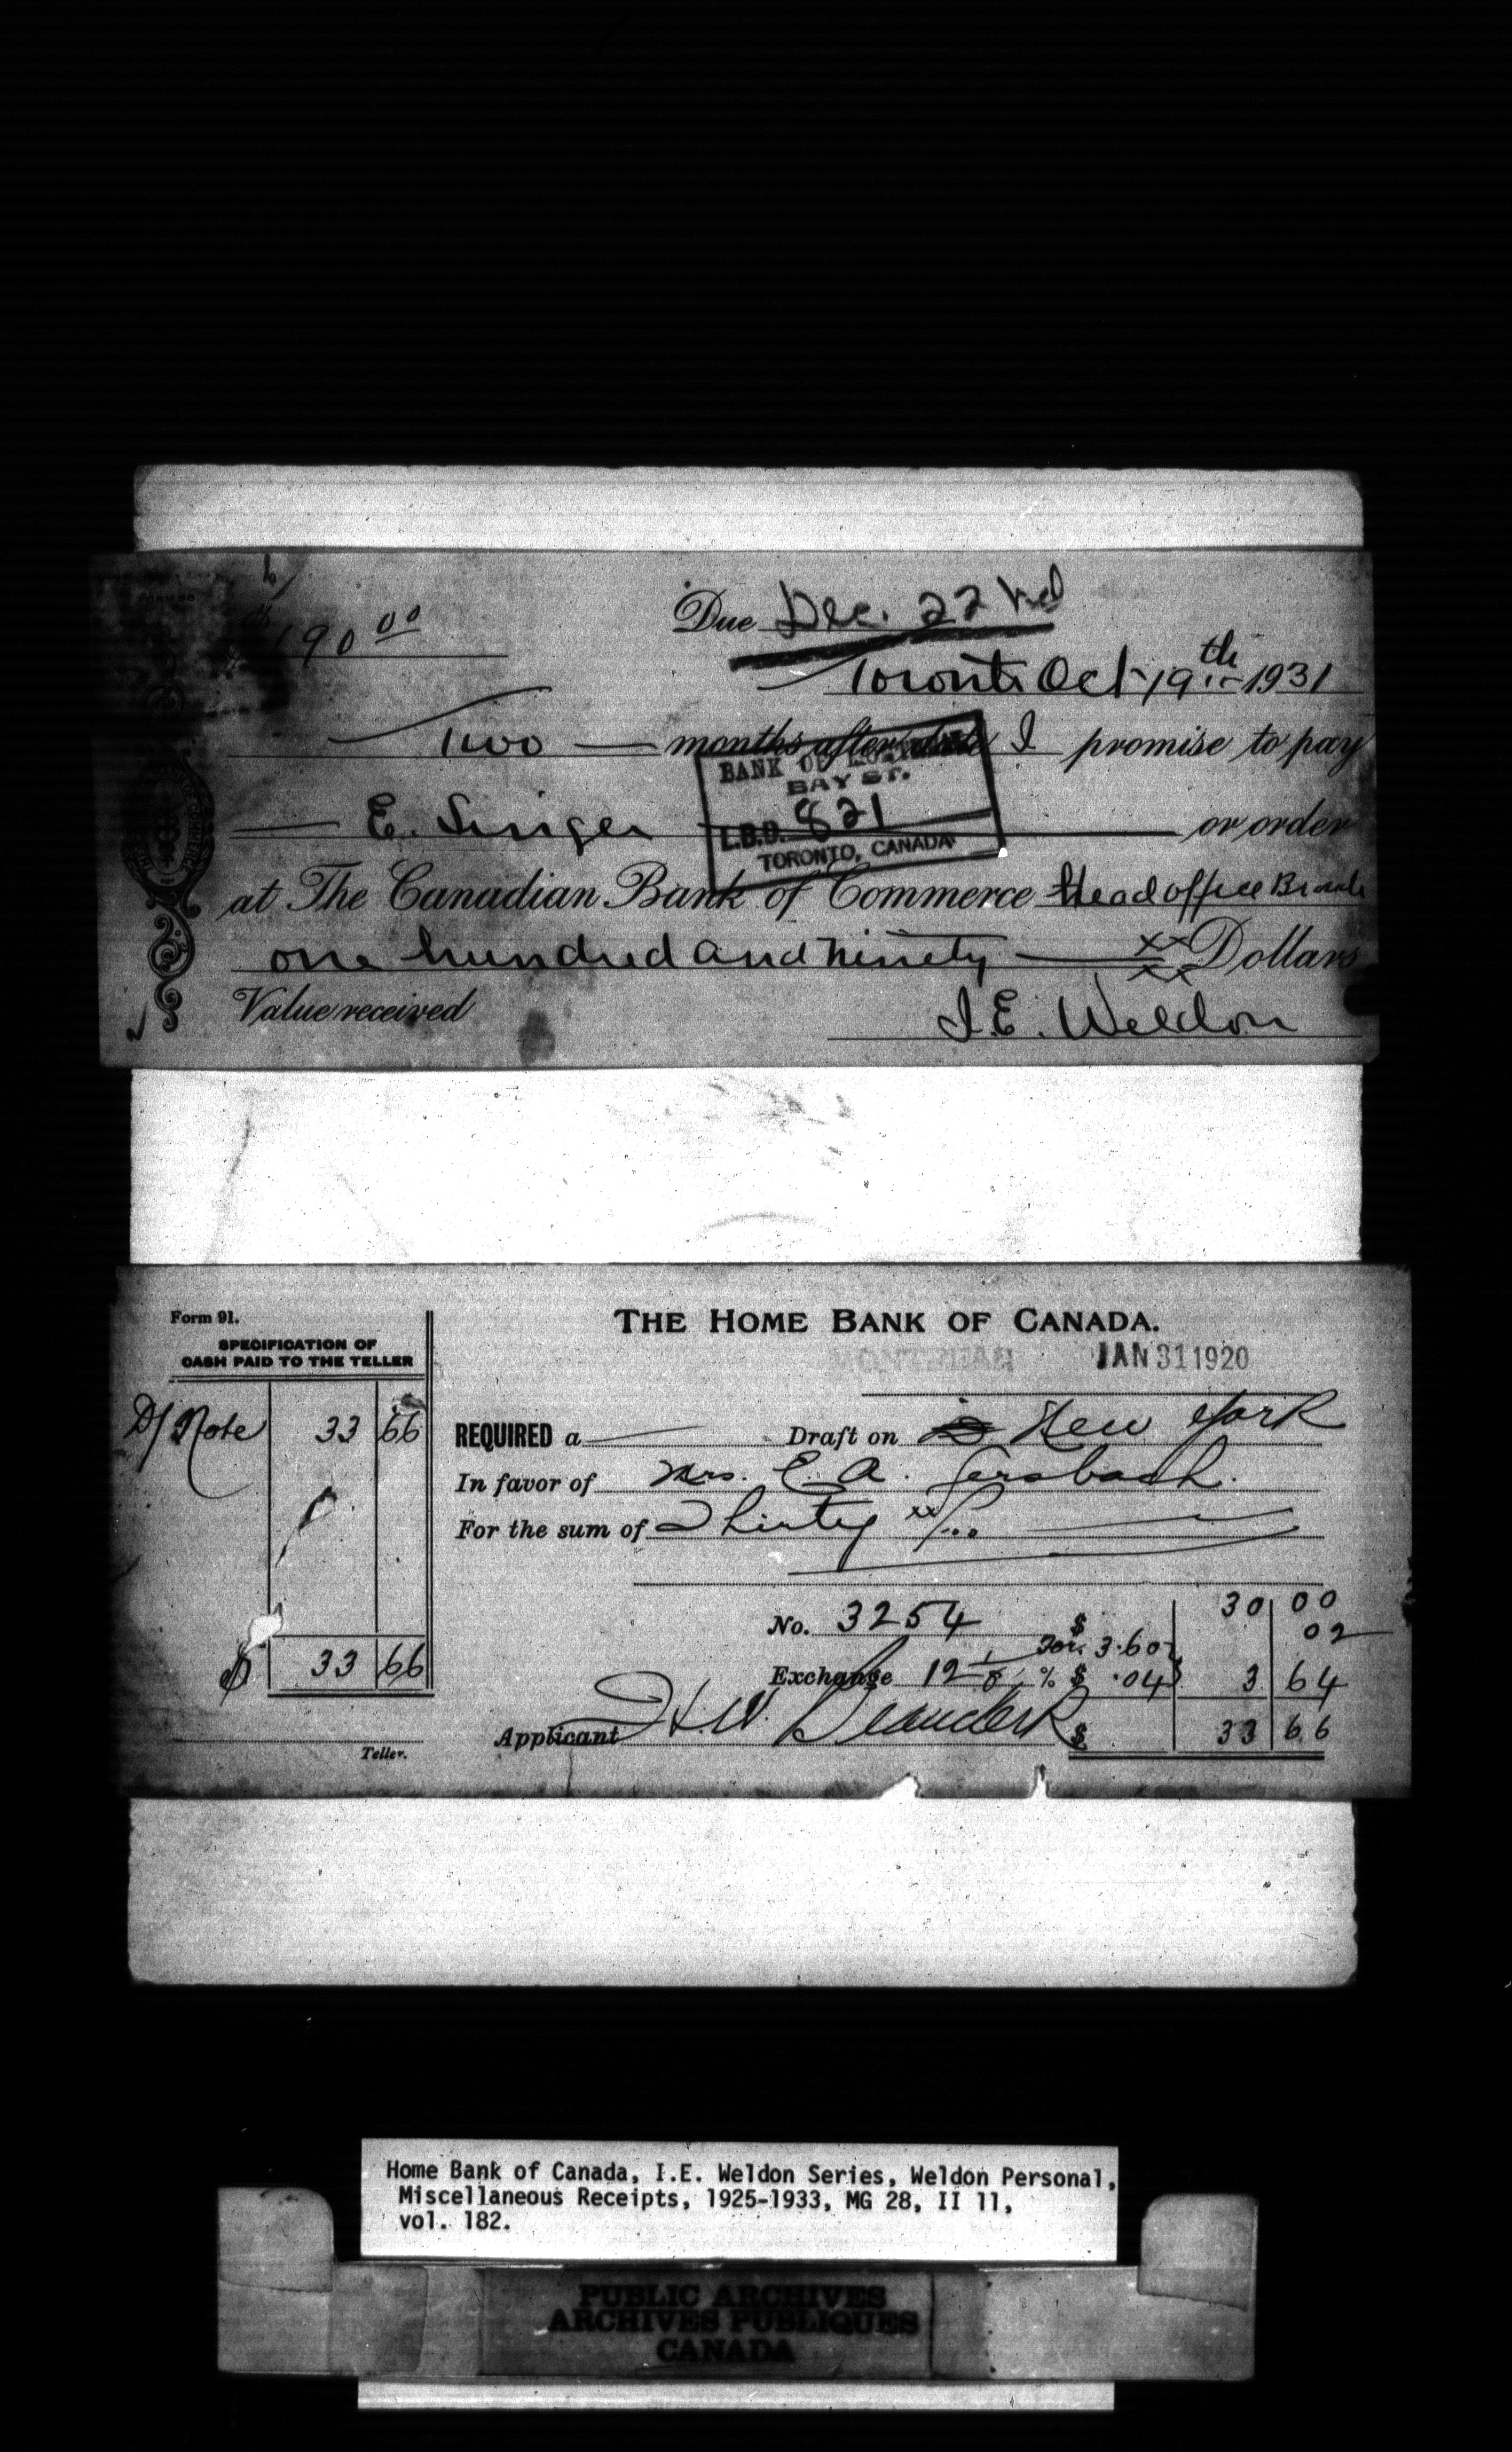 FORM 56.
$190 00
Due Dec. 22nd
Toronto Oct 19th 1931
Two months after date I promise to pay
E. Singer or order
BANK OF MONTREAL
BAY ST.
L.B.D. 821
TORONTO, CANADA
at The Canadian Bank of Commerce Head office Branch
one hundred and ninety xx/xx Dollars
Value received
I.E. Weldon
Form 91.
THE HOME BANK OF CANADA.
SPECIFICATION OF
CASH PAID TO THE TELLER
JAN 31 1920
D/ Note 33 66
REQUIRED a Draft on New York
In favor of Mrs. E. A.
For the sum of Thirty xx/00
30 00
No. 3254 02
$ 3.60
Exchange 12 1/8 % $ .04 3 64
$ 33 66
Applicant H.W. $ 33 66
Teller.
Home Bank of Canada, I.E. Weldon Series, Weldon Personal,
Miscellaneous Receipts, 1925-1933, MG 28, II 11,
vol. 182.
PUBLIC ARCHIVES
ARCHIVES PUBLIQUES
CANADA